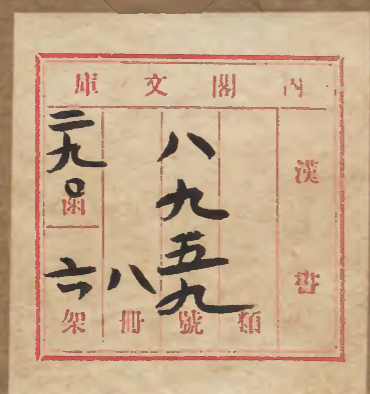 內閣文庫
漢書
類
八九五九號
八冊
二九〇函
六架